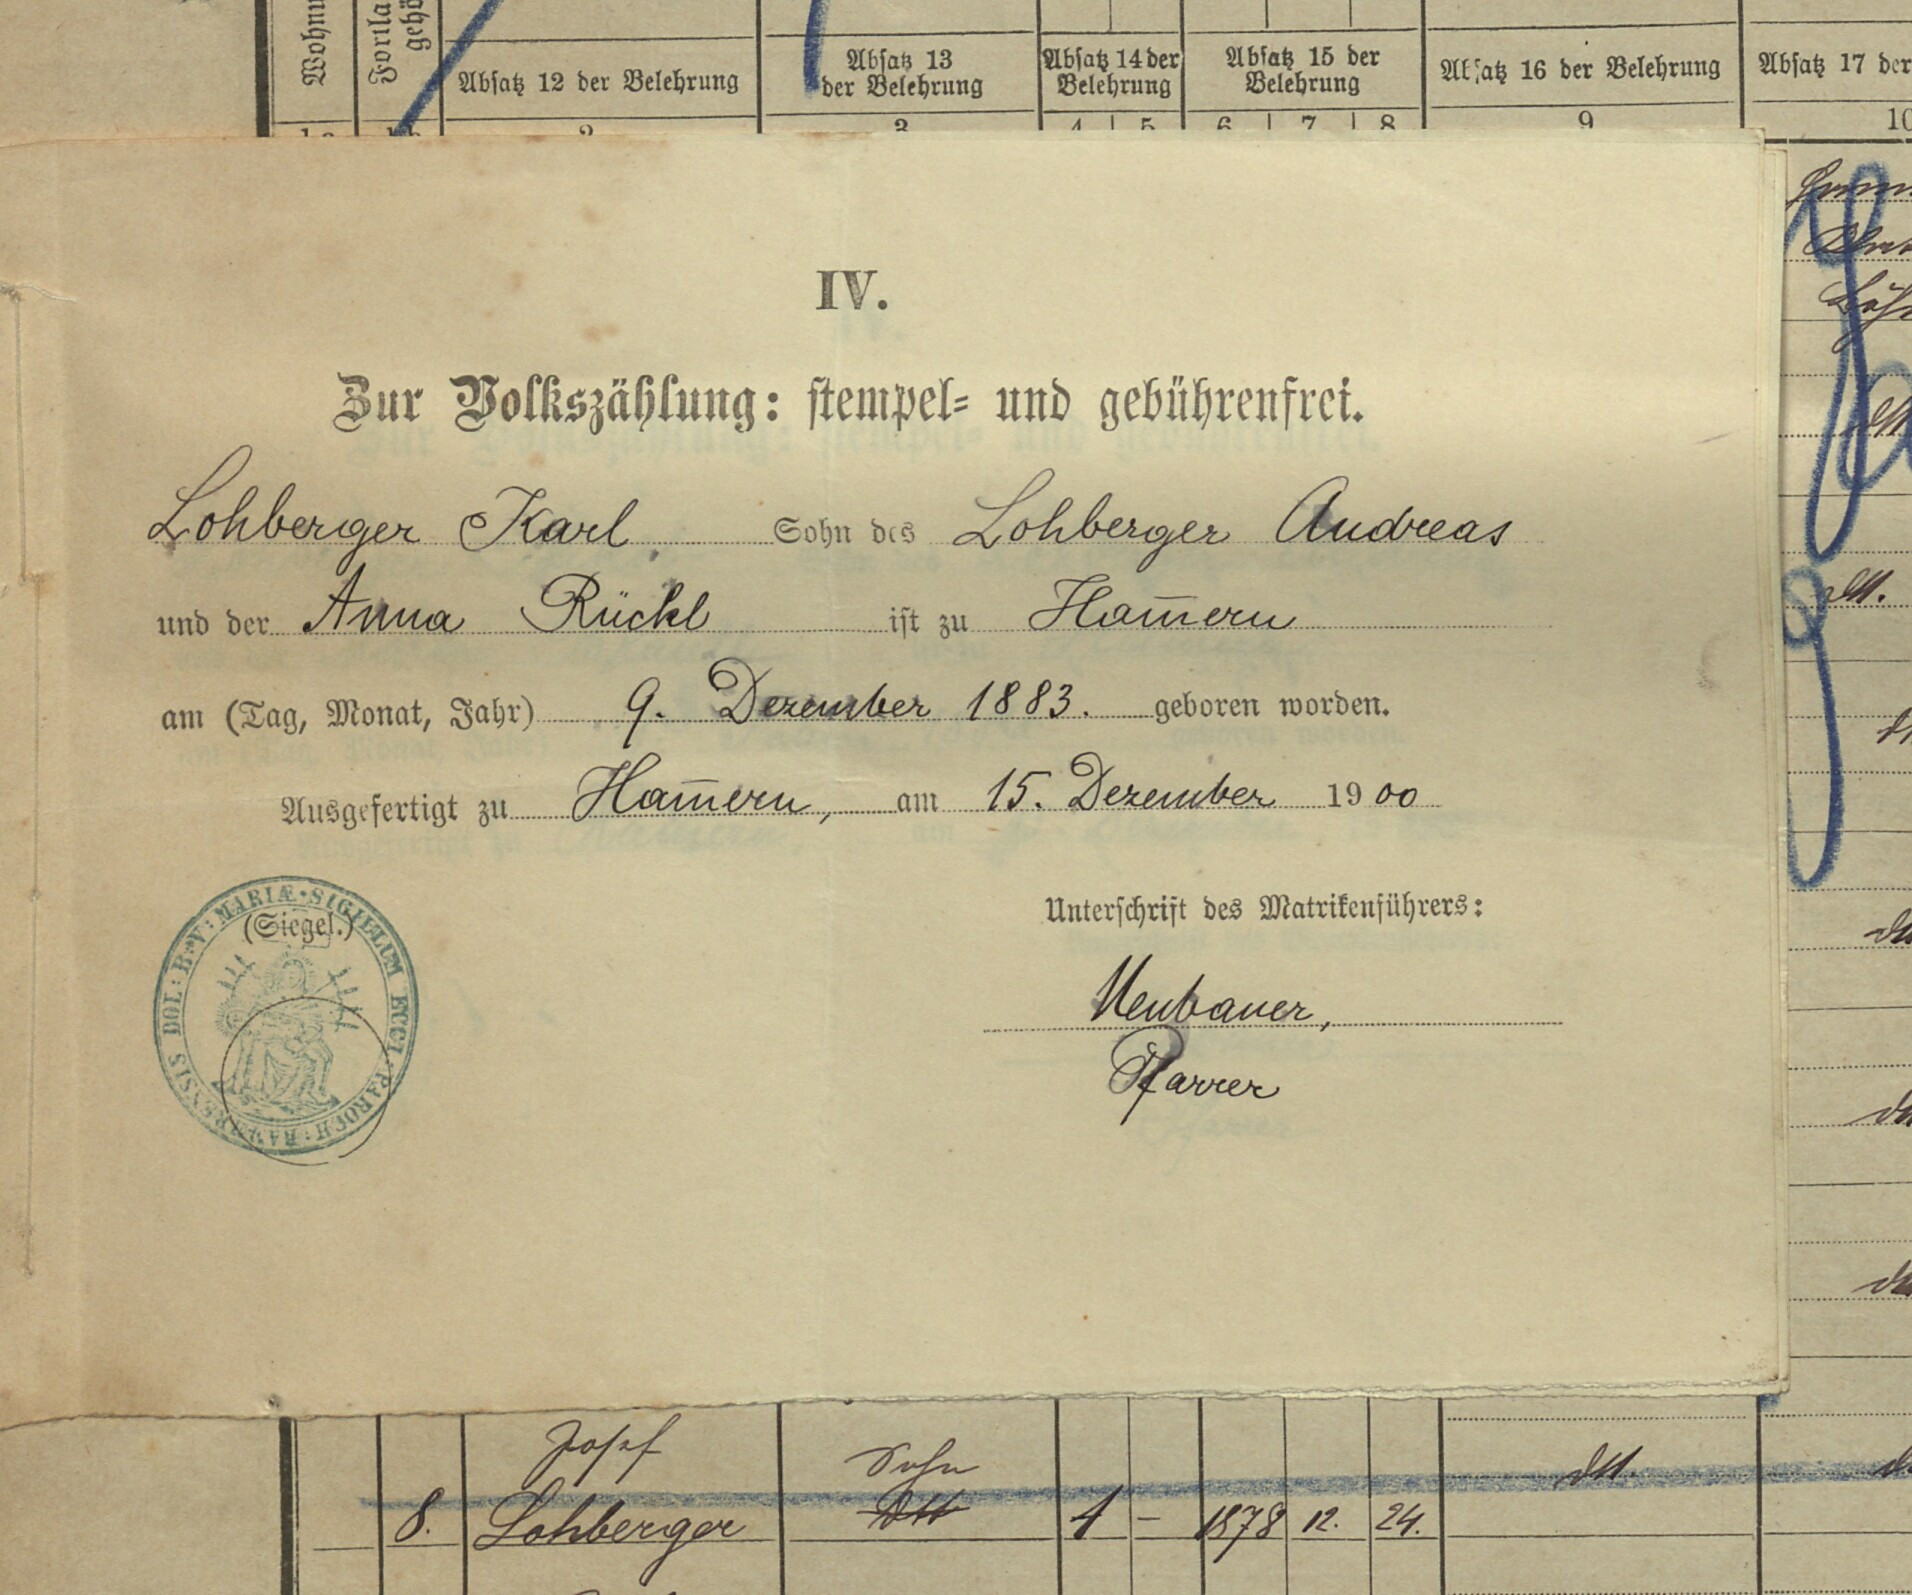 Wohnu
Fortla
gehö
Absatz 12 der Belehrung
Absatz 13
der Belehrung
Absatz 14 der
Belehrung
Absatz 15 der
Belehrung
Absatz 16 der Belehrung
Absatz 17 der
1a 1b 2 3 4 5 6 7 8 9 10
IV.
Zur Volkszählung: stempel- und gebührenfrei.
Lohberger Karl Sohn des Lohberger Andreas
und der Anna Rückl ist zu Ham̄ern
am (Tag, Monat, Jahr) 9. Dezember 1883. geboren worden.
Ausgefertigt zu Ham̄ern, am 15. Dezember 1900
(Siegel.)
DOL: B: V: MARIÆ • SIGILLUM ECCL PAROCH: HAMRENSIS
Unterschrift des Matrikenführers:
Neubauer,
Pfarrer
Josef
Sohn
dtt.
8. Lohberger dtt 1 – 1878 12. 24.